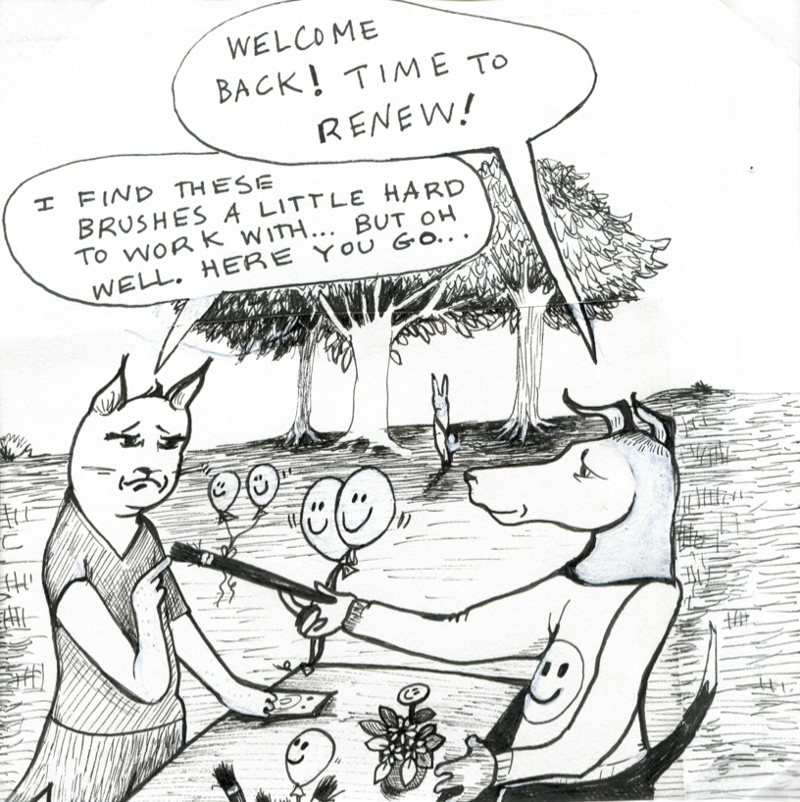 WELCOME
BACK! TIME TO
RENEW!
I FIND THESE
BRUSHES A LITTLE HARD
TO WORK WITH... BUT OH
WELL. HERE YOU GO...